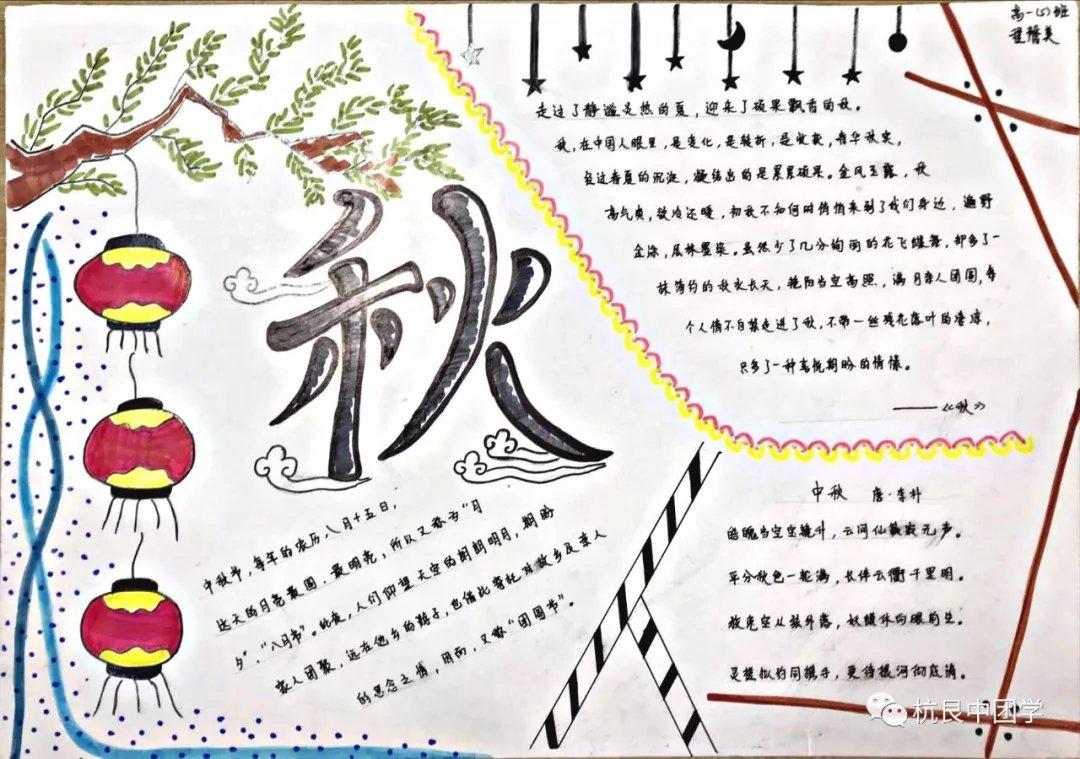 高一(5)班
秋
走过了静谧炎热的夏，迎来了硕果飘香的秋。
秋，在中国人眼里，是变化，是转折，是收获，春华秋实，
经过春夏的沉淀，凝结出的是累累硕果。金风玉露，秋
高气爽，欲冷还暖，初秋不知何时悄悄来到了我们身边，遍野
金涂，层林墨染。虽然少了几分绚丽的花飞蝶舞，却多了一
抹简约的秋水长天，艳阳当空高照，满月亲人团圆，每
个人情不自禁走进了秋，不带一丝残花落叶的凄凉，
只多了一种喜悦期盼的情愫。
——《秋》
中秋 唐·李朴
皓魄当空宝镜升，云间仙籁寂无声。
平分秋色一轮满，长伴云衢千里明。
狡兔空从弦外落，妖蟆休向眼前生。
灵槎拟约同携手，更待银河彻底清。
中秋节，每年的农历八月十五日，
这天的月亮最圆、最明亮，所以又称为“月
夕”、“八月节”。此夜，人们仰望天空的朗朗明月，期盼
家人团聚，远在他乡的游子，也借此寄托对故乡及亲人
的思念之情，因而，又称“团圆节”。
杭艮中团学